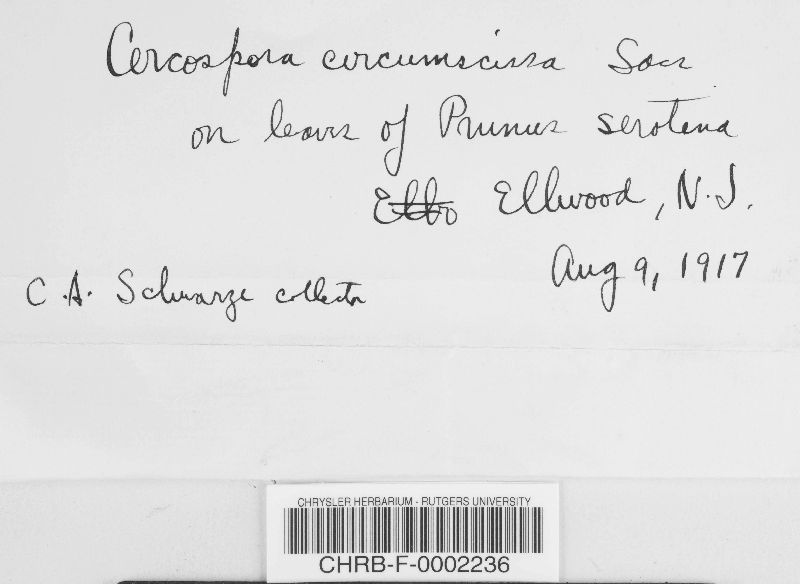 Cercospora circumscissa Sacc
on leaves of Prunus serotina
Ellwood, N.J.
Aug 9, 1917
C.A. Schwarze collector
CHRYSLER HERBARIUM - RUTGERS UNIVERSITY
CHRB-F-0002236